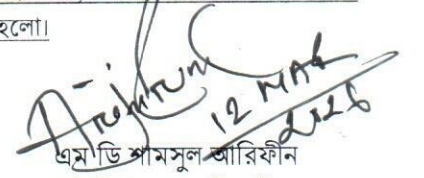 হলো।
12 MAR
2026
এম ডি শামসুল আরিফীন